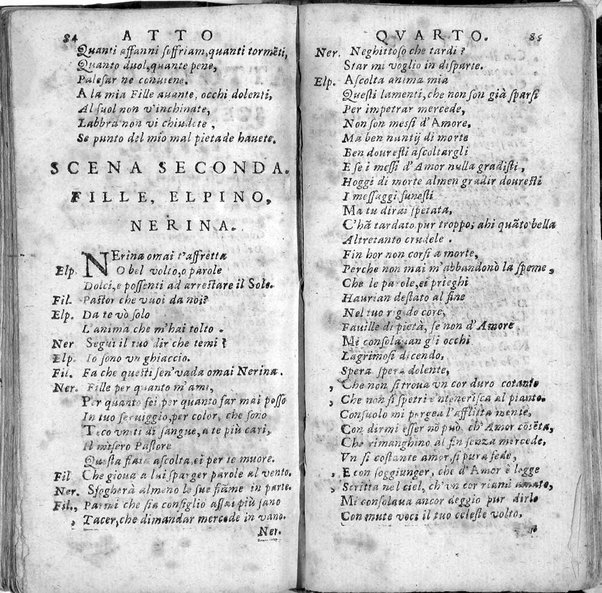 84 ATTO
Quanti affanni soffriam, quanti tormẽti,
Quanto duol, quante pene,
Palesar ne conuiene.
A la mia Fille auante, occhi dolenti,
Al suol non v'inchinate,
Labbra non vi chiudete,
Se punto del mio mal pietade hauete.
SCENA SECONDA.
FILLE, ELPINO,
NERINA.
NErina omai t'affretta
Elp. O bel volto, o parole
Dolci, e possenti ad arrestare il Sole.
Fil. Pastor che vuoi da noi?
Elp. Da te vò solo
L'anima che m'hai tolto.
Ner Segui il tuo dir che temi?
Elp. Io sono vn ghiaccio.
Fil. Fa che questi sen'vada omai Nerina.
Ner. Fille per quanto m'ami,
Per quanto sei per quanto far mai posso
In tuo seruiggio, per color, che sono
Teco vniti di sangue, a te più cari,
Il misero Pastore
Questa fiata ascolta, ei per te muore.
Fil Che gioua a lui sparger parole al vento.
Ner. Sfogherà almeno le sue fiãme in parte.
Fil., Parmi che sia consiglio assai più sano
, Tacer, che dimandar mercede in vano.
Ner.
QVARTO. 85
Ner. Neghittoso che tardi?
Star mi voglio in disparte.
Elp. Ascolta anima mia
Questi lamenti, che non son già sparsi
Per impetrar mercede,
Non son messi d'Amore,
Ma ben nantij di morte
Ben douresti ascoltargli
E se i messi d'Amor nulla gradisti,
Hoggi di morte almen gradir douresti
I messaggi funesti
Ma tu dirai spetata,
C'hã tardato pur troppo; ahi quãto bella
Altretanto crudele.
Fin hor non corsi a morte,
Perche non mai m'abbandonò la speme,
Che le parole, ei prieghi
Haurian destato al fine
Nel tuo rigido core,
Fauille di pietà, se non d'Amore
Mi consolauan gli occhi
Lagrimosi dicendo,
Spera spera dolente,
, Che non si troua vn cor duro cotanto
, Che non si spetri e intenerisca al pianto.
Consuolo mi porgea l'afflitta mente,
Con dirmi esser nõ può, ch'Amor cõsẽta,
Che rimanghino al fin senza mercede,
Vn sì costante amor, sì pura fede,
, E con soggiunger, che d'Amor è legge
, Scritta nel ciel, ch'vn cor riami amato,
Mi consolaua ancor deggio pur dirlo
Con mute voci il tuo celeste volto,